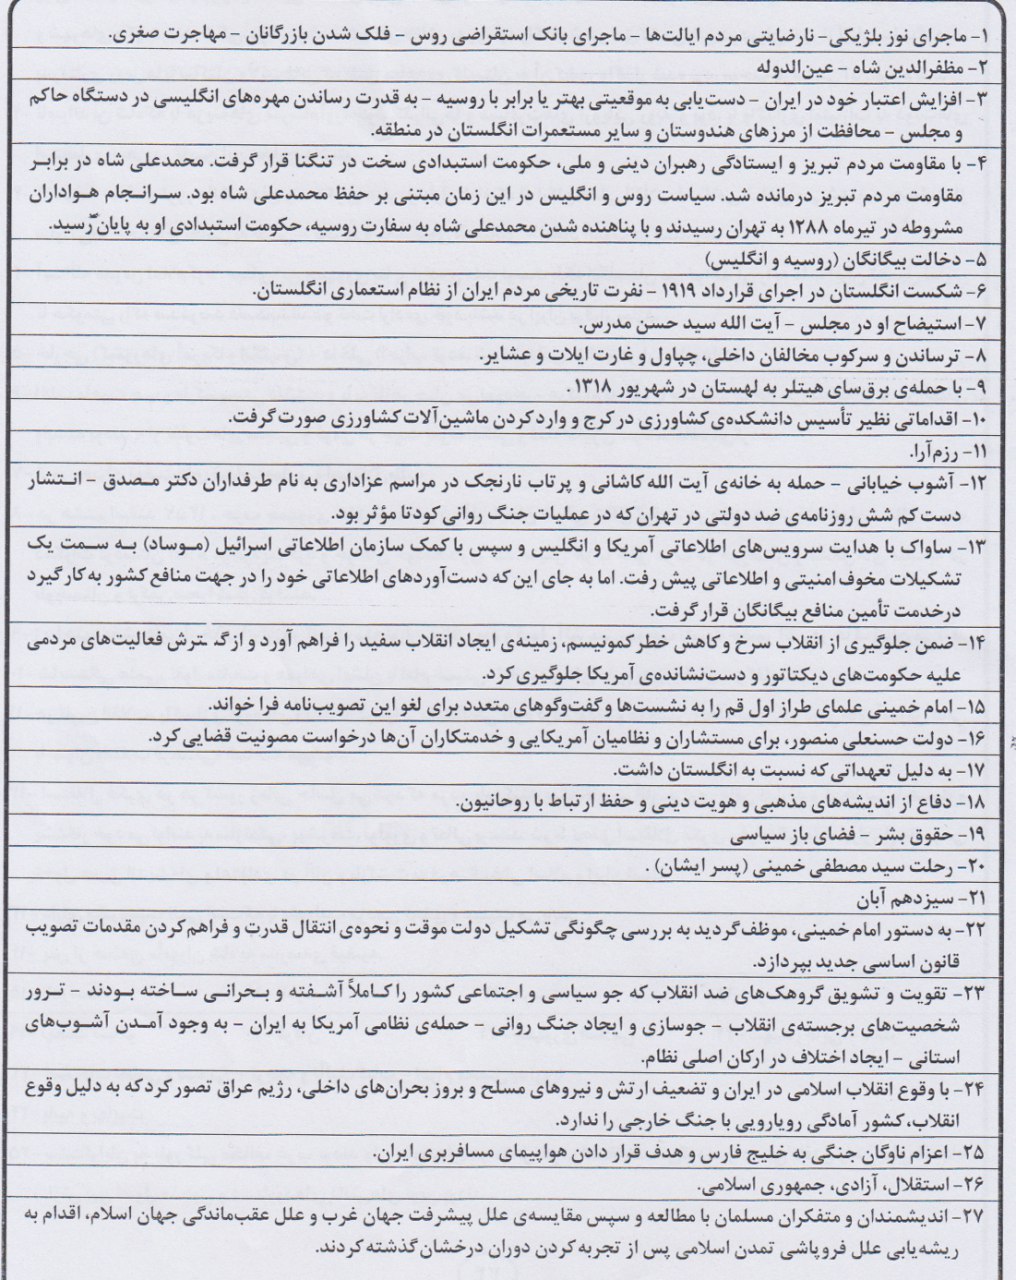 ۱- ماجرای نوز بلژیکی- نارضایتی مردم ایالت‌ها - ماجرای بانک استقراضی روس - فلک شدن بازرگانان - مهاجرت صغری.
۲- مظفرالدین شاه - عین‌الدوله
۳- افزایش اعتبار خود در ایران - دست‌یابی به موقعیتی بهتر یا برابر با روسیه - به قدرت رساندن مهره‌های انگلیسی در دستگاه حاکم
و مجلس - محافظت از مرزهای هندوستان و سایر مستعمرات انگلستان در منطقه.
۴- با مقاومت مردم تبریز و ایستادگی رهبران دینی و ملی، حکومت استبدادی سخت در تنگنا قرار گرفت. محمدعلی شاه در برابر
مقاومت مردم تبریز درمانده شد. سیاست روس و انگلیس در این زمان مبتنی بر حفظ محمدعلی شاه بود. سرانجام هواداران
مشروطه در تیرماه ۱۲۸۸ به تهران رسیدند و با پناهنده شدن محمدعلی شاه به سفارت روسیه، حکومت استبدادی او به پایان رسید.
۵- دخالت بیگانگان (روسیه و انگلیس)
۶- شکست انگلستان در اجرای قرارداد ۱۹۱۹ - نفرت تاریخی مردم ایران از نظام استعماری انگلستان.
۷- استیضاح او در مجلس - آیت الله سید حسن مدرس.
۸- ترساندن و سرکوب مخالفان داخلی، چپاول و غارت ایلات و عشایر.
۹- با حمله‌ی برق‌سای هیتلر به لهستان در شهریور ۱۳۱۸ .
۱۰- اقداماتی نظیر تأسیس دانشکده‌ی کشاورزی در کرج و وارد کردن ماشین‌آلات کشاورزی صورت گرفت.
۱۱- رزم‌آرا.
۱۲- آشوب خیابانی - حمله به خانه‌ی آیت الله کاشانی و پرتاب نارنجک در مراسم عزاداری به نام طرفداران دکتر مصدق - انتشار
دست کم شش روزنامه‌ی ضد دولتی در تهران که در عملیات جنگ روانی کودتا مؤثر بود.
۱۳- ساواک با هدایت سرویس‌های اطلاعاتی آمریکا و انگلیس و سپس با کمک سازمان اطلاعاتی اسرائیل (موساد) به سمت یک
تشکیلات مخوف امنیتی و اطلاعاتی پیش رفت. اما به جای این‌که دست‌آوردهای اطلاعاتی خود را در جهت منافع کشور به کار گیرد
درخدمت تأمین منافع بیگانگان قرار گرفت.
۱۴- ضمن جلوگیری از انقلاب سرخ و کاهش خطر کمونیسم، زمینه‌ی ایجاد انقلاب سفید را فراهم آورد و از گسترش فعالیت‌های مردمی
علیه حکومت‌های دیکتاتور و دست‌نشانده‌ی آمریکا جلوگیری کرد.
۱۵- امام خمینی علمای طراز اول قم را به نشست‌ها و گفت‌وگوهای متعدد برای لغو این تصویب‌نامه فرا خواند.
۱۶- دولت حسنعلی منصور، برای مستشاران و نظامیان آمریکایی و خدمتکاران آن‌ها درخواست مصونیت قضایی کرد.
۱۷- به دلیل تعهداتی که نسبت به انگلستان داشت.
۱۸- دفاع از اندیشه‌های مذهبی و هویت دینی و حفظ ارتباط با روحانیون.
۱۹- حقوق بشر - فضای باز سیاسی
۲۰- رحلت سید مصطفی خمینی (پسر ایشان) .
۲۱- سیزدهم آبان
۲۲- به دستور امام خمینی، موظف گردید به بررسی چگونگی تشکیل دولت موقت و نحوه‌ی انتقال قدرت و فراهم کردن مقدمات تصویب
قانون اساسی جدید بپردازد.
۲۳- تقویت و تشویق گروهک‌های ضد انقلاب که جو سیاسی و اجتماعی کشور را کاملاً آشفته و بحرانی ساخته بودند - ترور
شخصیت‌های برجسته‌ی انقلاب - جوسازی و ایجاد جنگ روانی - حمله‌ی نظامی آمریکا به ایران - به وجود آمدن آشوب‌های
استانی - ایجاد اختلاف در ارکان اصلی نظام.
۲۴- با وقوع انقلاب اسلامی در ایران و تضعیف ارتش و نیروهای مسلح و بروز بحران‌های داخلی، رژیم عراق تصور کرد که به دلیل وقوع
انقلاب، کشور آمادگی رویارویی با جنگ خارجی را ندارد.
۲۵- اعزام ناوگان جنگی به خلیج فارس و هدف قرار دادن هواپیمای مسافربری ایران.
۲۶- استقلال، آزادی، جمهوری اسلامی.
۲۷- اندیشمندان و متفکران مسلمان با مطالعه و سپس مقایسه‌ی علل پیشرفت جهان غرب و علل عقب‌ماندگی جهان اسلام، اقدام به
ریشه‌یابی علل فروپاشی تمدن اسلامی پس از تجربه کردن دوران درخشان گذشته کردند.